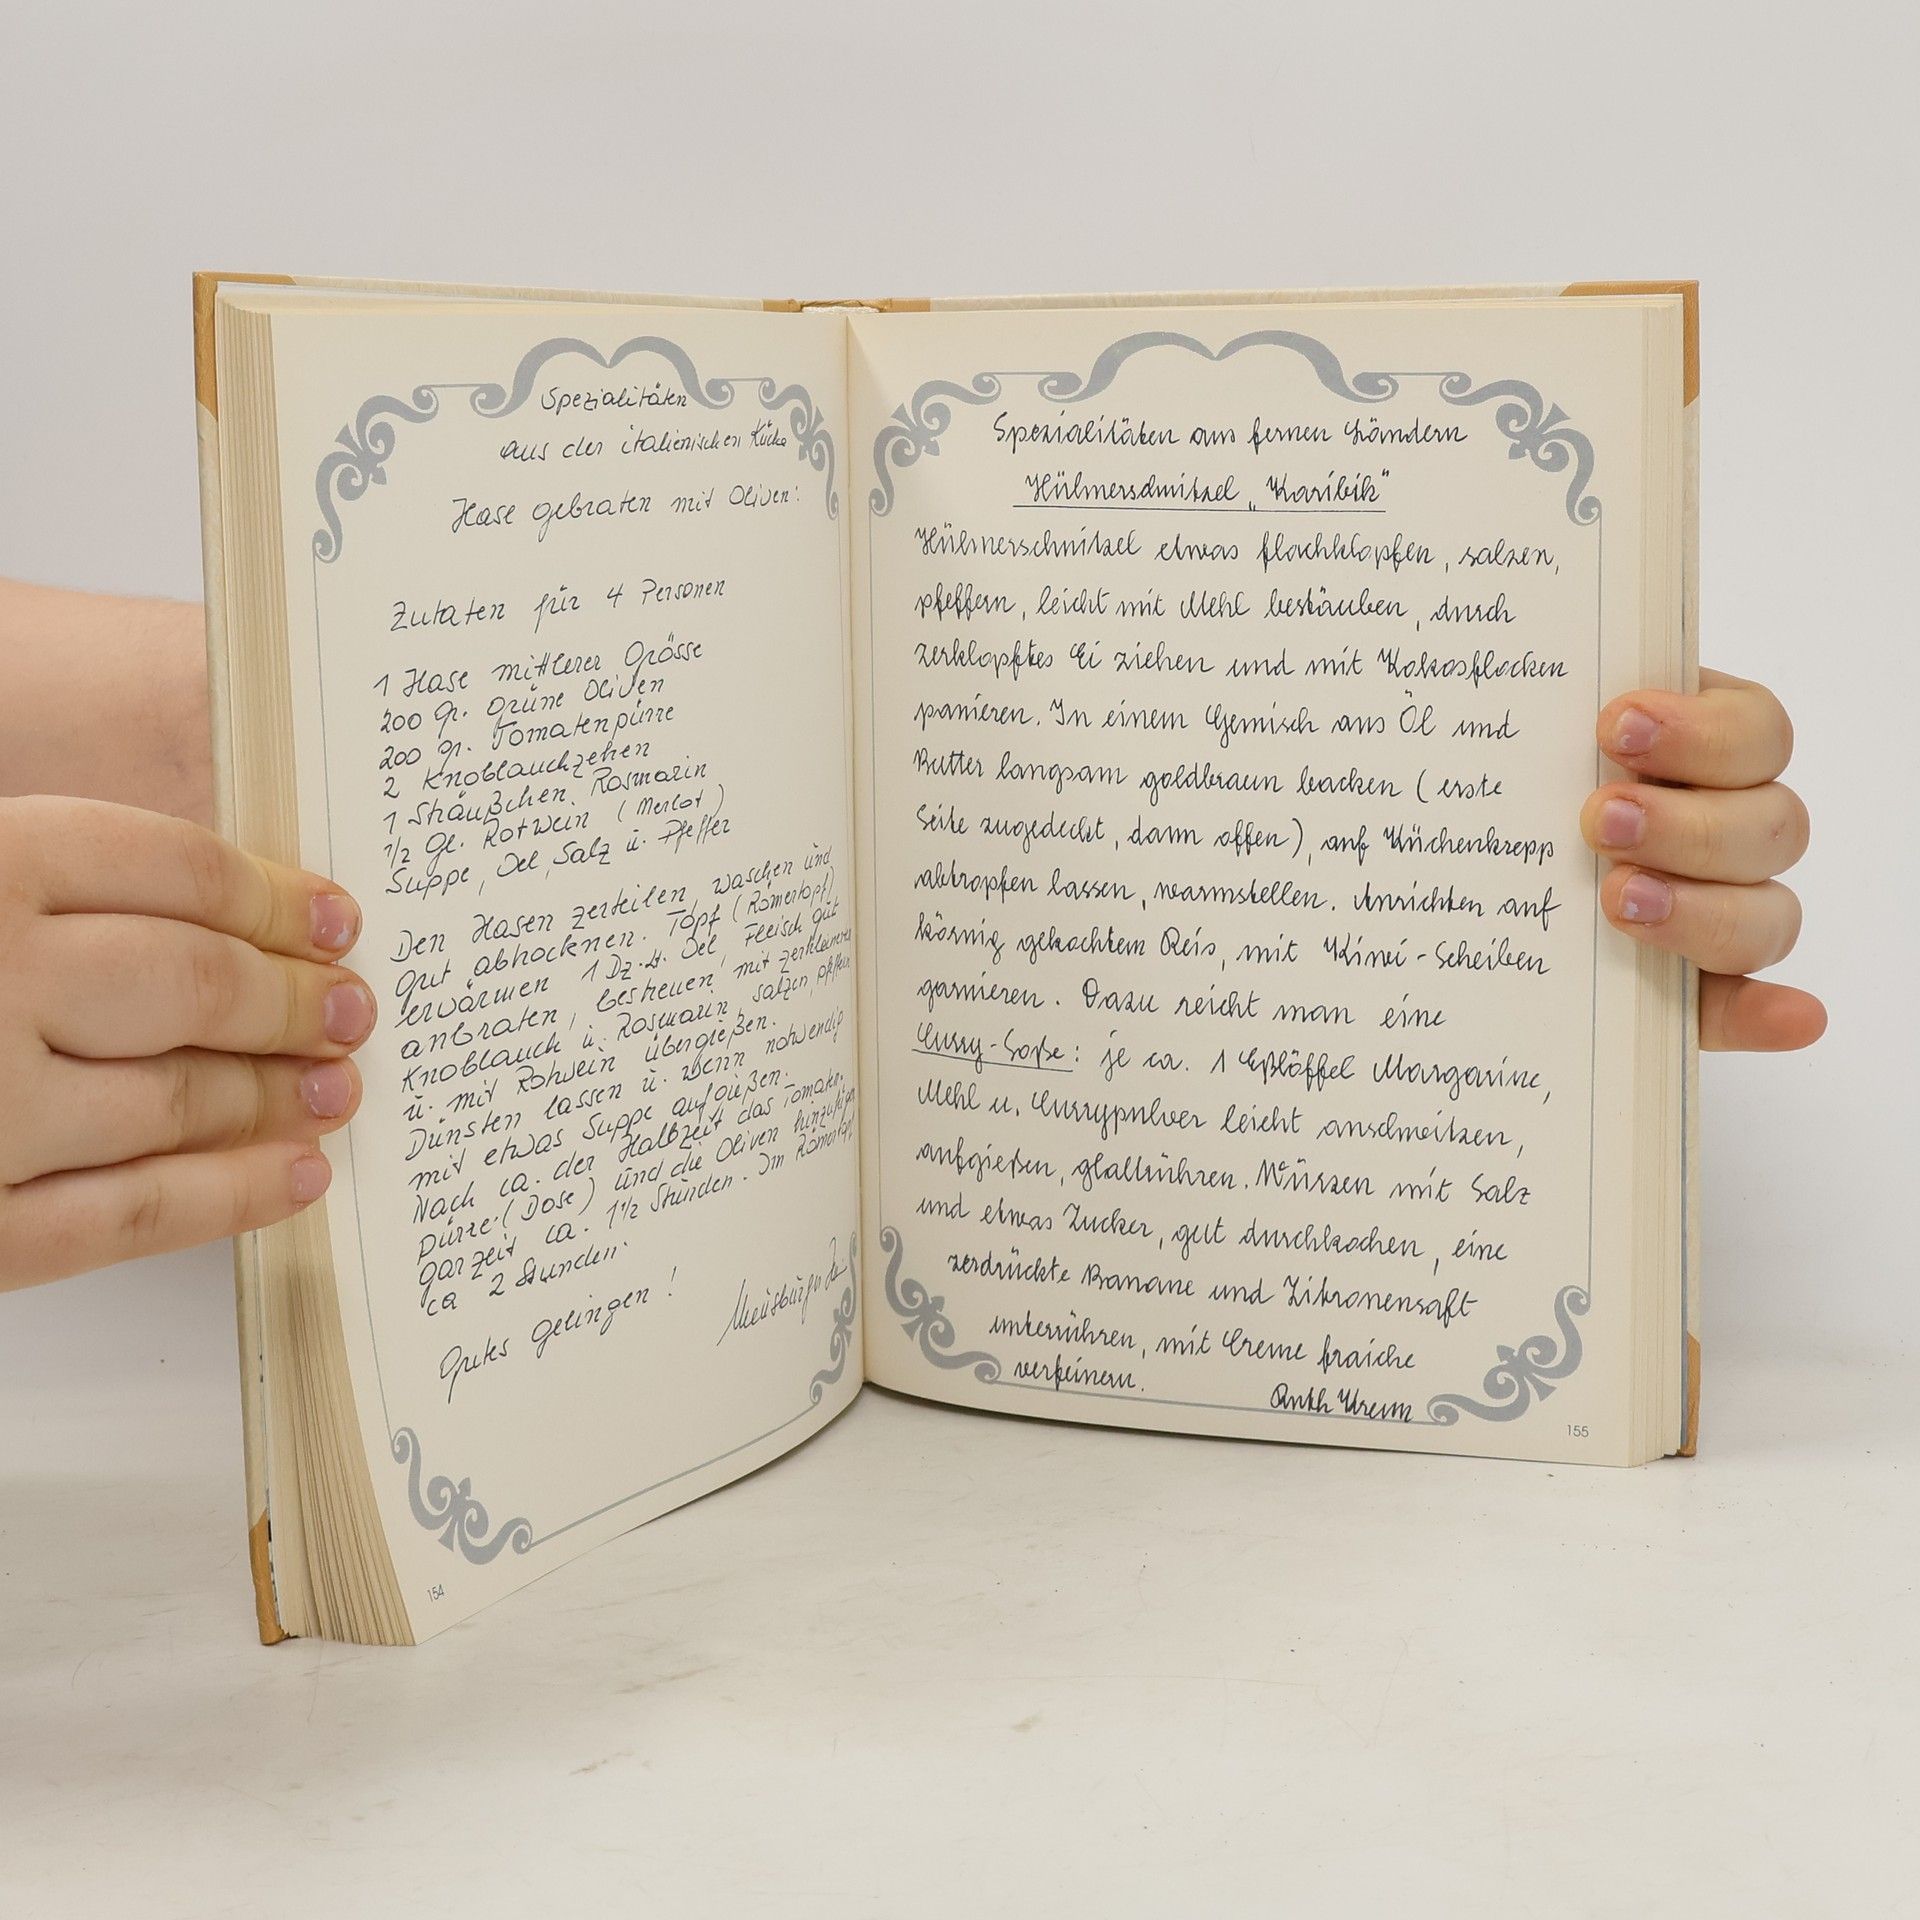 Spezialitäten
aus der italienischen Küche
Hase gebraten mit Oliven:
Zutaten für 4 Personen
1 Hase mittlerer Grösse
200 gr. grüne Oliven
200 gr. Tomatenpürre
2 Knoblauchzehen
1 Sträußchen Rosmarin
1/2 Gl. Rotwein (Merlot)
Suppe, Oel, Salz u. Pfeffer
Den Hasen zerteilen, waschen und
gut abtrocknen. Topf (Römertopf)
erwärmen 1 Dz.Lt. Oel, Fleisch gut
anbraten, bestreuen mit zerkleinerten
Knoblauch u. Rosmarin, salzen, pfeffern
u. mit Rotwein übergießen.
Dünsten lassen u. wenn notwendig
mit etwas Suppe aufgießen.
Nach ca. der Halbzeit das Tomaten-
pürre (Dose) und die Oliven hinzufügen
garzeit ca. 1 1/2 Stunden. Im Römertopf
ca 2 Stunden.
Gutes gelingen!
154
Spezialitäten aus fernen Ländern
Hühnerschnitzel „Karibik"
Hühnerschnitzel etwas flachklopfen, salzen,
pfeffern, leicht mit Mehl bestäuben, durch
zerklopftes Ei ziehen und mit Kokosflocken
panieren. In einem Gemisch aus Öl und
Butter langsam goldbraun backen (erste
Seite zugedeckt, dann offen), auf Küchenkrepp
abtropfen lassen, warmstellen. Anrichten auf
körnig gekochtem Reis, mit Kiwi-Scheiben
garnieren. Dazu reicht man eine
Curry-Soße: je ca. 1 Eßlöffel Margarine,
Mehl u. Currypulver leicht anschwitzen,
aufgießen, glattrühren. Würzen mit Salz
und etwas Zucker, gut durchkochen, eine
zerdrückte Banane und Zitronensaft
unterrühren, mit Creme fraiche
verfeinern.
Ruth
155